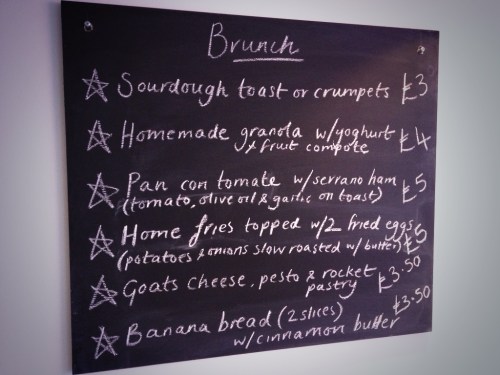 Brunch
Sourdough toast or crumpets £3
Homemade granola w/yoghurt
& fruit compote £4
Pan con tomate w/serrano ham
(tomato, olive oil & garlic on toast) £5
Home fries topped w/2 fried eggs
(potatoes & onions slow roasted w/ butter) £5
Goats cheese, pesto & rocket
pastry £3.50
Banana bread (2 slices)
w/cinnamon butter £3.50